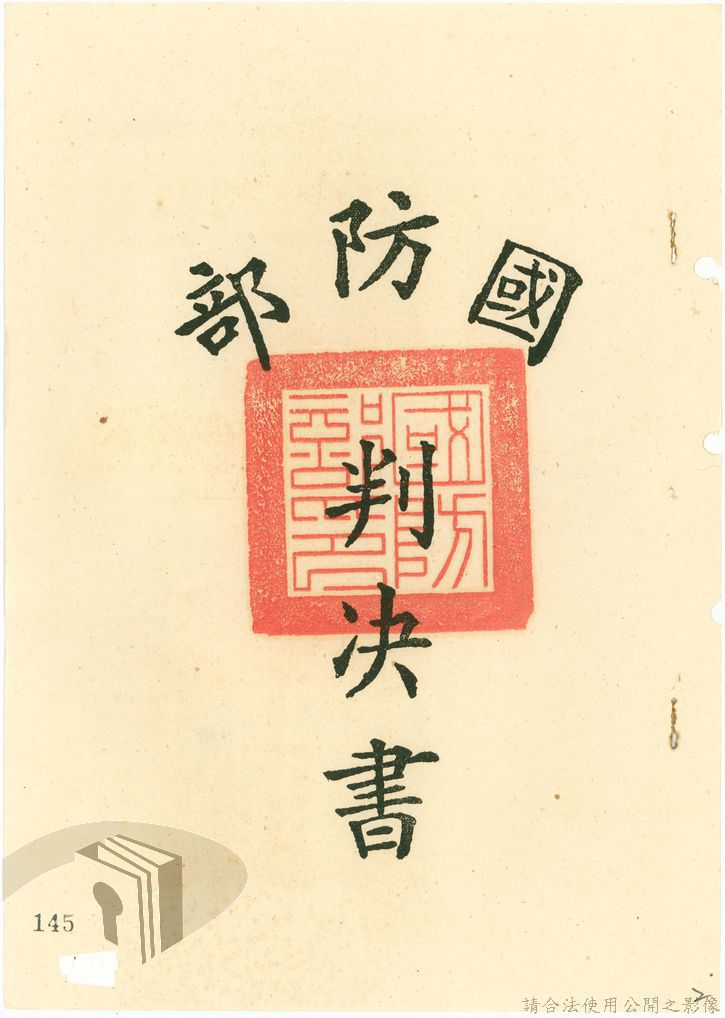 國防部
判決書
國防部印
145
請合法使用公開之影像